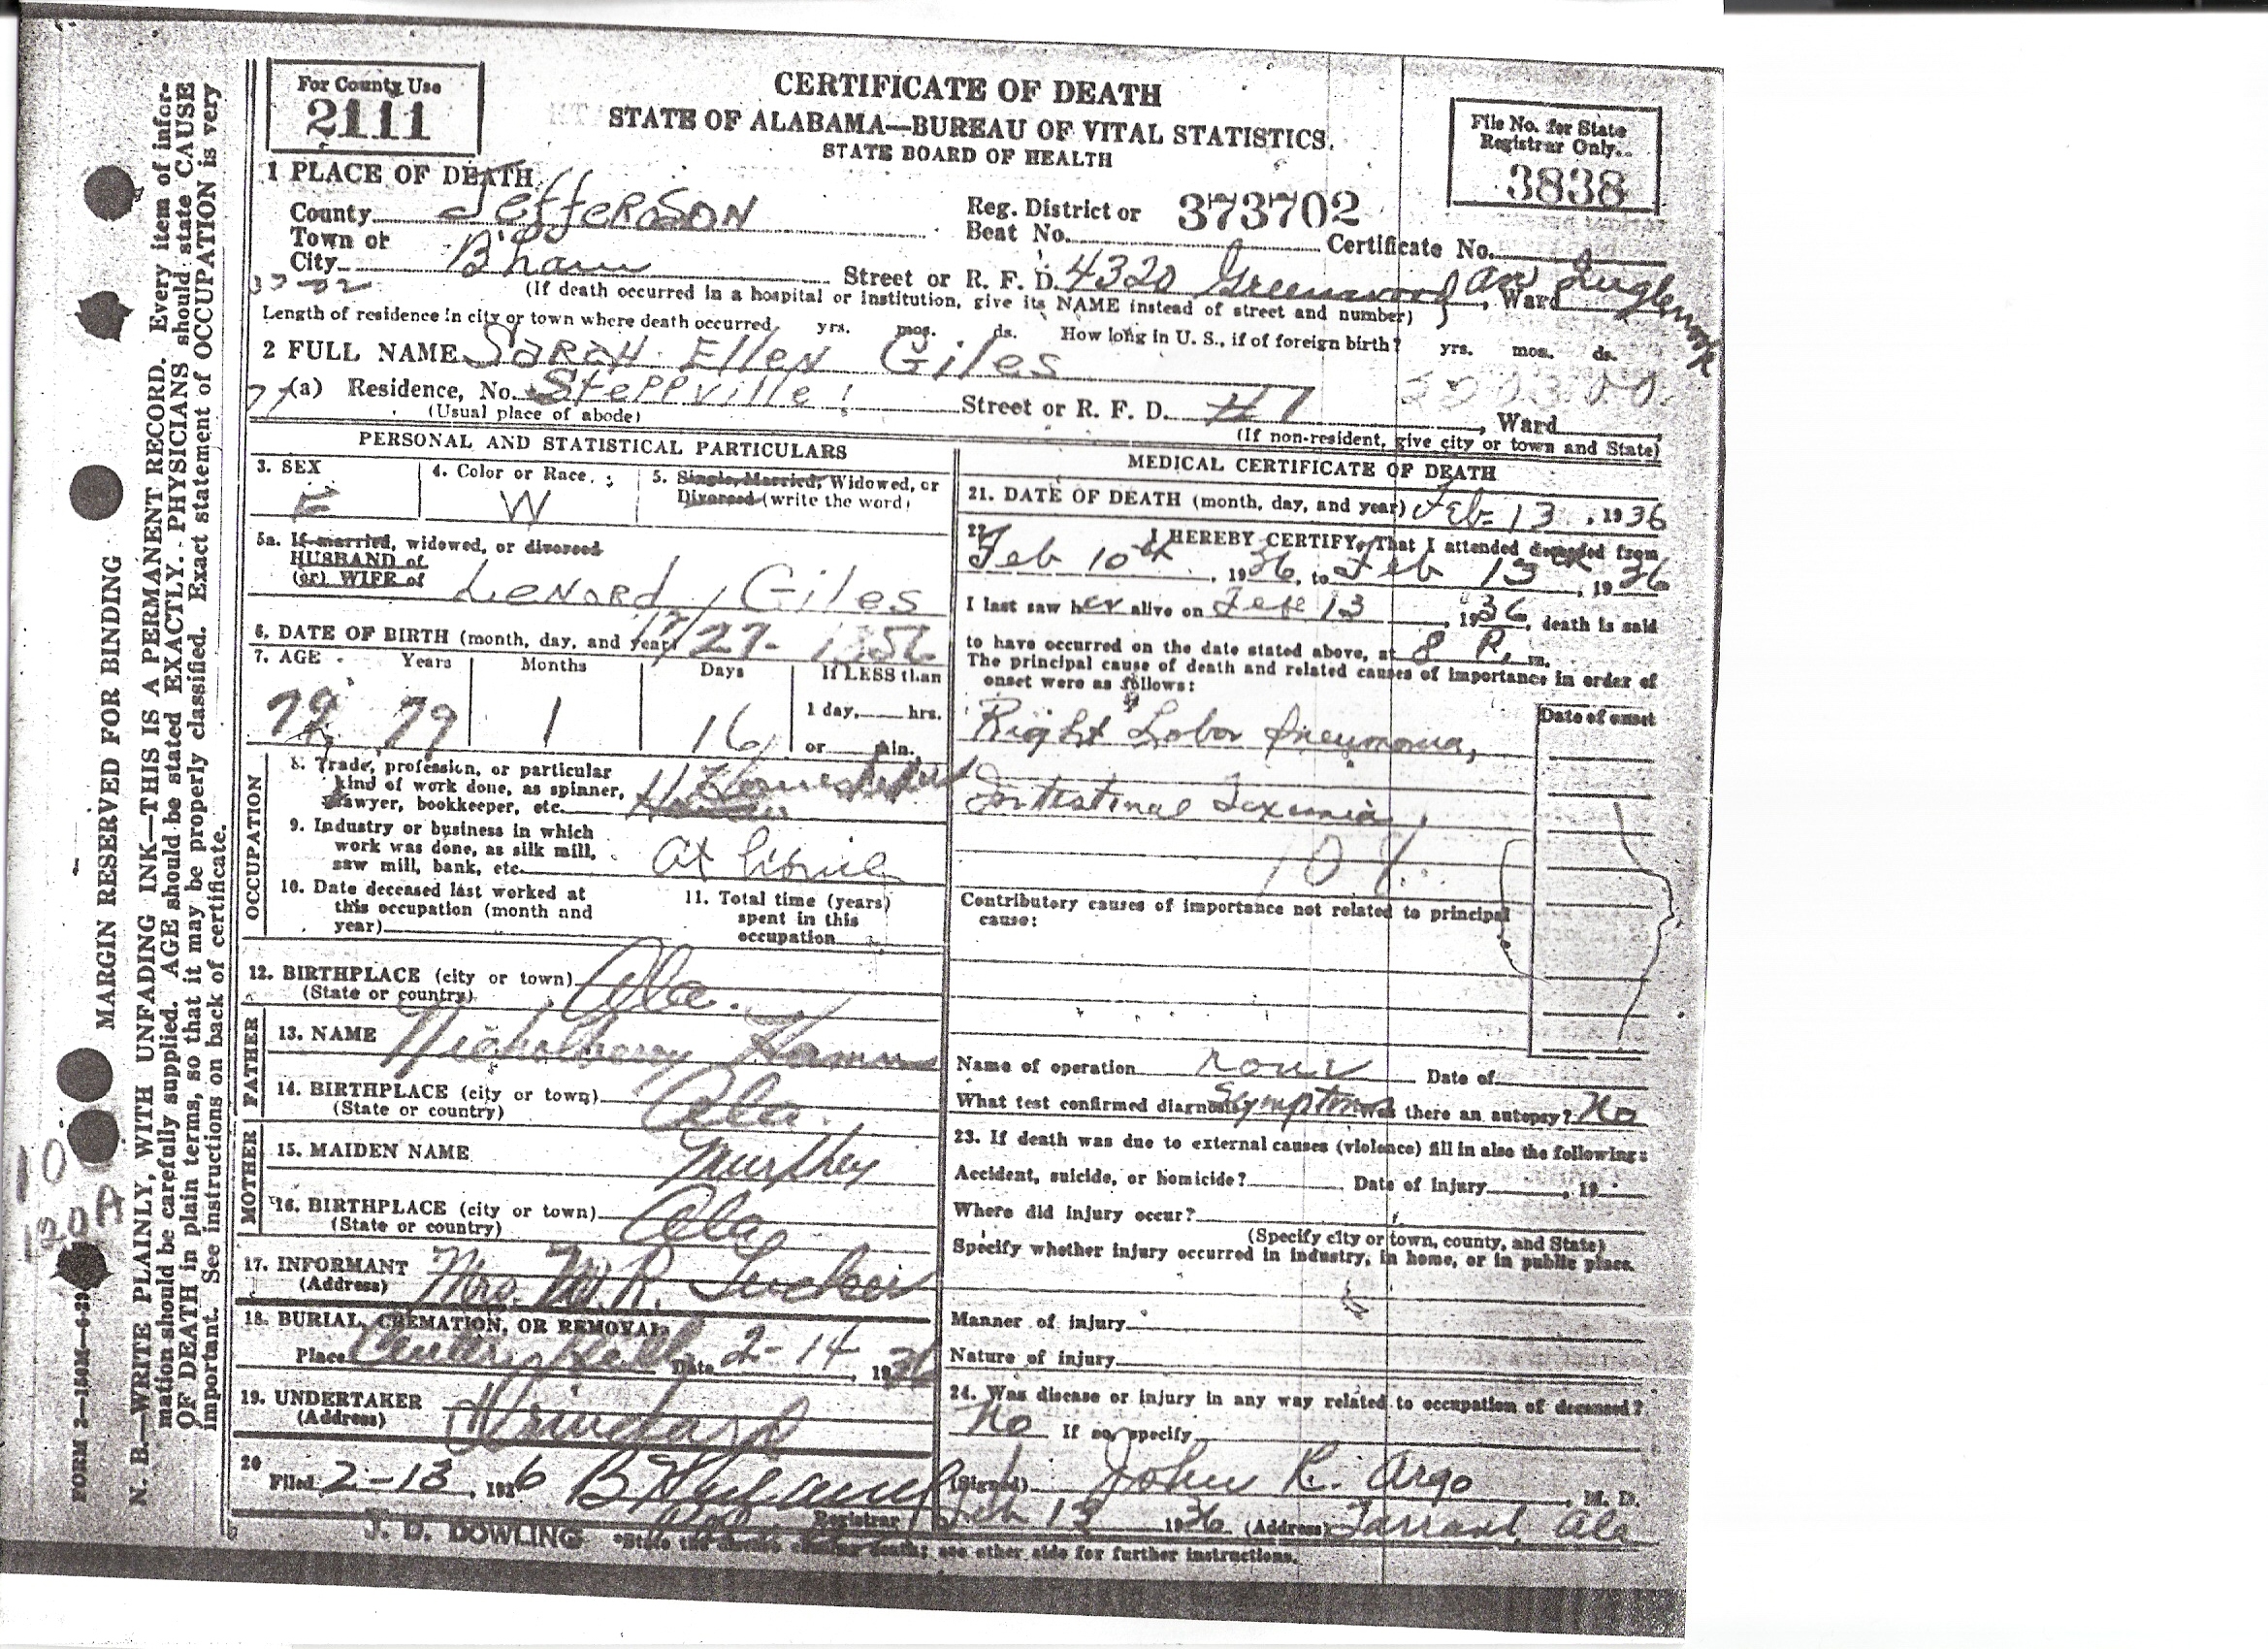 For County Use
2111
CERTIFICATE OF DEATH
STATE OF ALABAMA—BUREAU OF VITAL STATISTICS.
STATE BOARD OF HEALTH
File No. for State
Registrar Only.
3838
1 PLACE OF DEATH
County Jefferson
Reg. District or
Beat No. 373702 Certificate No.
Town or
City B'ham Street or R. F. D. 4320 Greenwood Ave
, Ward
(If death occurred in a hospital or institution, give its NAME instead of street and number)
Length of residence in city or town where death occurred yrs. mos. ds. How long in U. S., if of foreign birth? yrs. mos. ds.
2 FULL NAME Sarah Ellen Giles
(a) Residence, No. Steppville Street or R. F. D. #1 , Ward
(Usual place of abode) (If non-resident, give city or town and State)
PERSONAL AND STATISTICAL PARTICULARS
3. SEX
F
4. Color or Race
W
5. Single, Married, Widowed, or
Divorced (write the word)
5a. If married, widowed, or divorced
HUSBAND of
(or) WIFE of Lenard Giles
6. DATE OF BIRTH (month, day, and year) 12/27- 1856
7. AGE Years Months Days If LESS than
79 1 16 1 day, hrs.
or min.
OCCUPATION
8. Trade, profession, or particular
kind of work done, as spinner,
sawyer, bookkeeper, etc.
9. Industry or business in which
work was done, as silk mill,
saw mill, bank, etc. at home
10. Date deceased last worked at
this occupation (month and
year)
11. Total time (years)
spent in this
occupation
12. BIRTHPLACE (city or town)
(State or country) Ala.
FATHER
13. NAME
14. BIRTHPLACE (city or town)
(State or country) Ala.
MOTHER
15. MAIDEN NAME Murphey
16. BIRTHPLACE (city or town)
(State or country) Ala
17. INFORMANT
(Address) Mrs. W. R. Tucker
18. BURIAL, CREMATION, OR REMOVAL
Place Date 2-14, 1936
19. UNDERTAKER
(Address)
20
Filed 2-13, 1936
Registrar
J. D. DOWLING
MEDICAL CERTIFICATE OF DEATH
21. DATE OF DEATH (month, day, and year) Feb-13, 1936
22. I HEREBY CERTIFY, That I attended deceased from
Feb 10th, 1936, to Feb 13, 1936
I last saw her alive on Feb 13, 1936, death is said
to have occurred on the date stated above, at 8 P. m.
The principal cause of death and related causes of importance in order of
onset were as follows:
Date of onset
Right Lobar Pneumonia,
Intestinal Toxemia
Contributory causes of importance not related to principal
cause:
Name of operation none Date of
What test confirmed diagnosis Symptoms Was there an autopsy? No
23. If death was due to external causes (violence) fill in also the following:
Accident, suicide, or homicide? Date of injury , 19
Where did injury occur?
(Specify city or town, county, and State)
Specify whether injury occurred in industry, in home, or in public place.
Manner of injury
Nature of injury
24. Was disease or injury in any way related to occupation of deceased?
No If so, specify
(Signed) John R. Argo , M. D.
Feb 13 1936 (Address) Tarrant, Ala
*State the disease causing death; see other side for further instructions.
MARGIN RESERVED FOR BINDING
N. B.—WRITE PLAINLY, WITH UNFADING INK—THIS IS A PERMANENT RECORD. Every item of infor-
mation should be carefully supplied. AGE should be stated EXACTLY. PHYSICIANS should state CAUSE
OF DEATH in plain terms, so that it may be properly classified. Exact statement of OCCUPATION is very
important. See instructions on back of certificate.